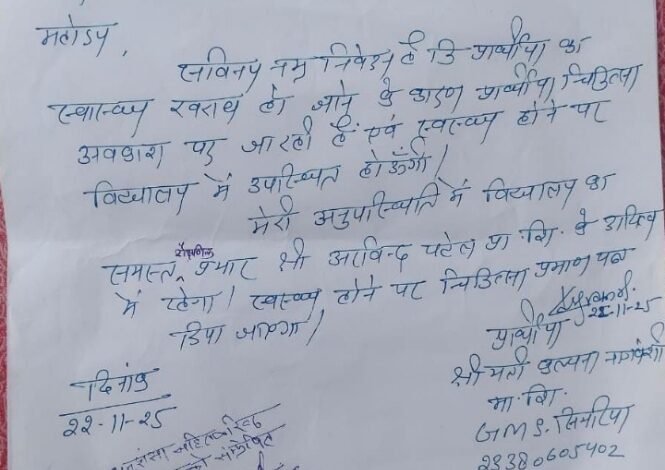 महोदय,
सविनय नम्र निवेदन है कि प्रार्थीया का
स्वास्थ्य खराब हो जाने के कारण प्रार्थीया चिकित्सा
अवकाश पर जा रही हूँ एवं स्वस्थ्य होने पर
विद्यालय में उपस्थित होऊँगी।
मेरी अनुपस्थिति में विद्यालय का
समस्त शैक्षणिक प्रभार श्री अरविन्द पटेल प्रा.शि. के दायित्व
में रहेगा। स्वस्थ्य होने पर चिकित्सा प्रमाण पत्र
दिया जाएगा।
22-11-25
प्रार्थीया
श्री मती कल्पना नागवंशी
मा.शि.
G.M.S. सिमरिया
23380605402
दिनांक
22-11-25